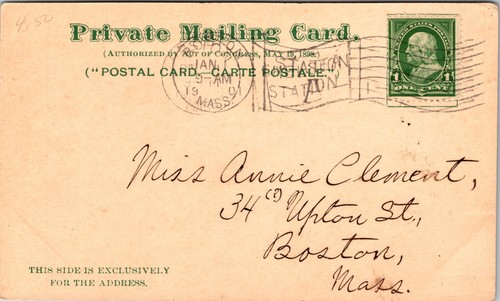 4.50
Private Mailing Card.
(AUTHORIZED BY ACT OF CONGRESS, MAY 19, 1898.)
("POSTAL CARD, CARTE POSTALE.")
BOSTON
JAN
9-AM
19 01
MASS.
STATION
A
1 1
ONE CENT
Miss Annie Clement,
34 Upton St.,
Boston,
Mass.
THIS SIDE IS EXCLUSIVELY
FOR THE ADDRESS.